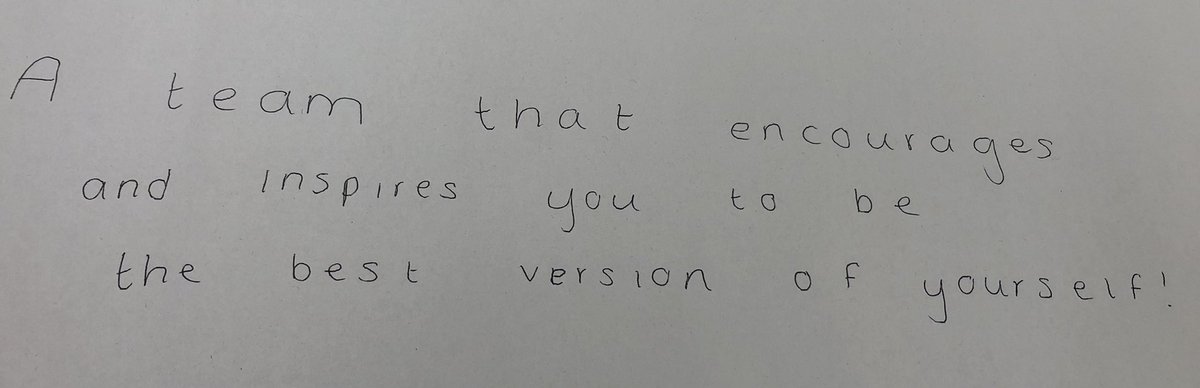 A team that encourages
and inspires you to be
the best version of yourself!